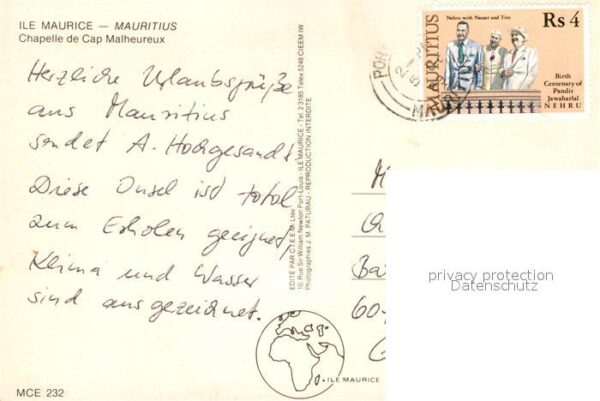 ILE MAURICE — MAURITIUS
Chapelle de Cap Malheureux
Herzliche Urlaubsgrüße
aus Mauritius
sendet A. Hochgesandt
Diese Insel ist total
zum Erholen geeignet,
Klima und Wasser
sind ausgezeichnet.
MCE 232
EDITE PAR C T E E M. Ltée
10, Rue Sir William Newton Port-Louis - ILE MAURICE - Tel. 2.3185 Telex 5248 CIEEM IW
Photographies J. M. PATURAU - REPRODUCTION INTERDITE
ILE MAURICE
MAURITIUS
Nehru with Nasser and Tito
Rs 4
Birth
Centenary of
Pandit
Jawaharlal
NEHRU
POR
MAURITIUS
60
privacy protection
Datenschutz